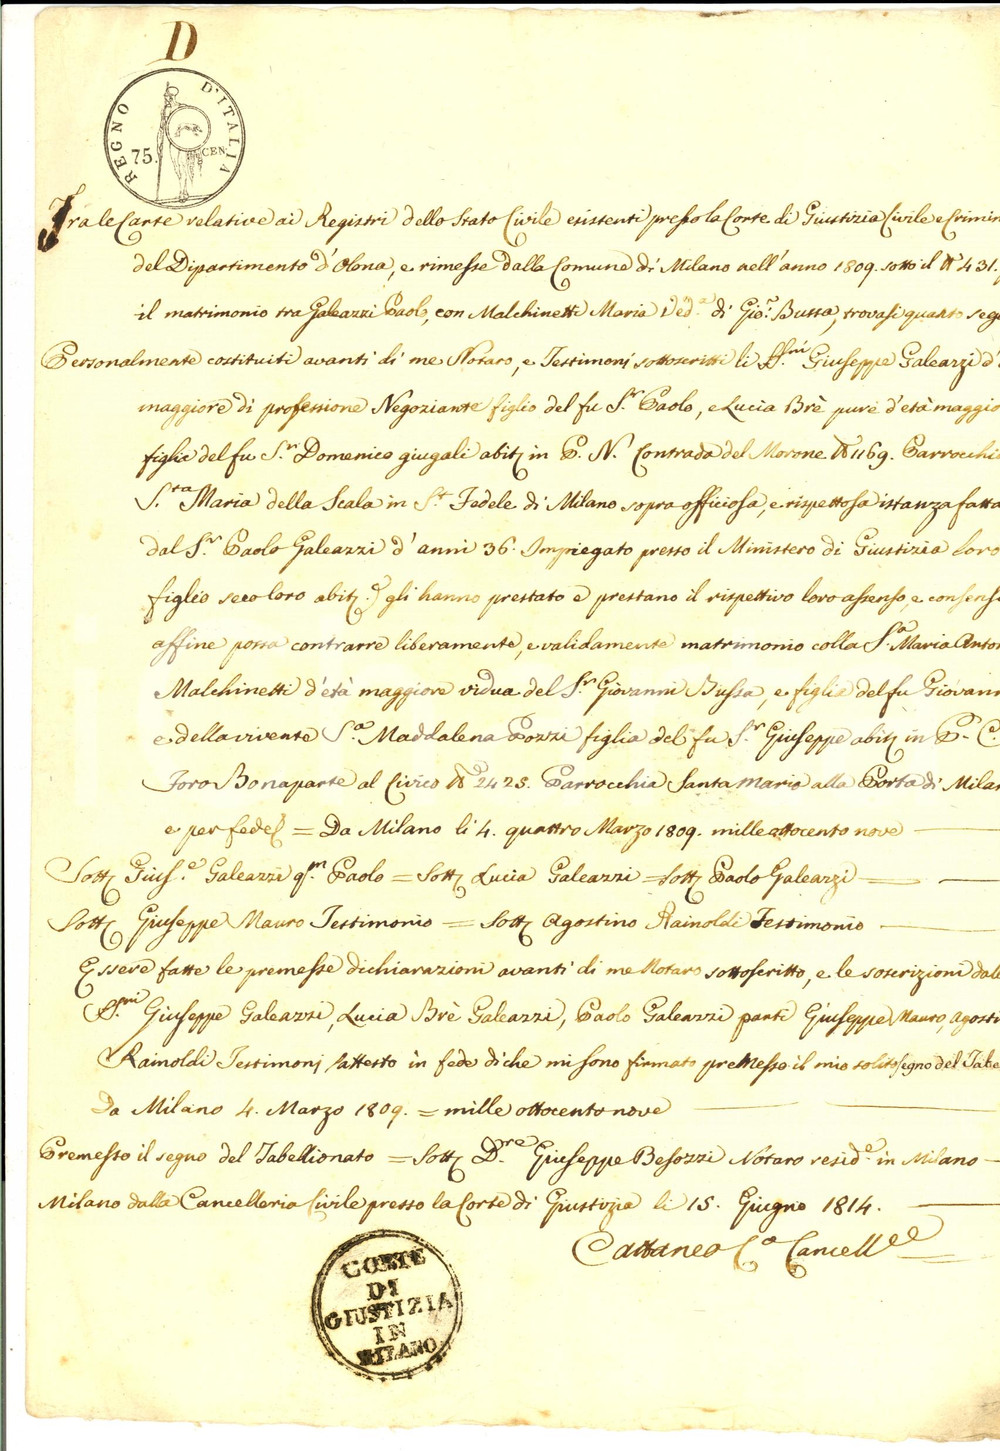 D
REGNO D'ITALIA
75. CEN.
Fra le Carte relative ai Registri dello Stato Civile esistenti presso la Corte di Giustizia Civile e Crimin
del Dipartimento d'Olona, e rimesse dalla Comune di Milano nell'anno 1809. sotto il N.° 431.
il matrimonio tra Galeazzi Paolo, con Malchinetti Maria Ved.a di Gio.i Bussa, trovasi quanto seg
Personalmente costituiti avanti di me Notaro, e Testimonj sottoscritti li S.ri Giuseppe Galeazzi d'
maggiore di professione Negoziante figlio del fu S.r Paolo, e Lucia Brè pure d'età maggio
figlia del fu S.r Domenico giugali abit. in P. N. Contrada del Morone N.° 1169. Parrocchi
S.ta Maria della Scala in S.t Fedele di Milano sopra officiosa, e rispettosa istanza fatta
dal S.r Paolo Galeazzi d'anni 36. Impiegato presso il Ministero di Giustizia loro
figlio seco loro abit. gli hanno prestato e prestano il rispettivo loro assenso, e consens
affine possa contrarre liberamente, e validamente matrimonio colla S.a Maria Anton
Malchinetti d'età maggiore vidua del S.r Giovanni Bussa, e figlia del fu Giovann
e della vivente S.a Maddalena Pozzi figlia del fu S.r Giuseppe abit. in P. C.
Foro Bonaparte al Civico N.° 2425. Parrocchia Santa Maria alla Porta di Milan
e per fede = Da Milano li 4. quattro Marzo 1809. mille ottocento nove
Sott. Gius.e Galeazzi q.m Paolo = Sott. Lucia Galeazzi = Sott. Paolo Galeazzi
Sott. Giuseppe Mauro Testimonio = Sott. Agostino Rainoldi Testimonio
Essere fatte le premesse dichiarazioni avanti di me Notaro sottoscritto, e le soscrizioni dall
S.ri Giuseppe Galeazzi, Lucia Brè Galeazzi, Paolo Galeazzi parti Giuseppe Mauro, Agosti
Rainoldi Testimonj attesto in fede di che mi sono firmato premesso il mio solito segno del Tabe
Da Milano 4. Marzo 1809. = mille ottocento nove
Premesso il segno del Tabellionato = Sott. D.re Giuseppe Besozzi Notaro resid.e in Milano
Milano dalla Cancelleria Civile presso la Corte di Giustizia li 15. Giugno 1814.
Cattaneo C.o Cancell.e
CORTE
DI
GIUSTIZIA
IN
MILANO